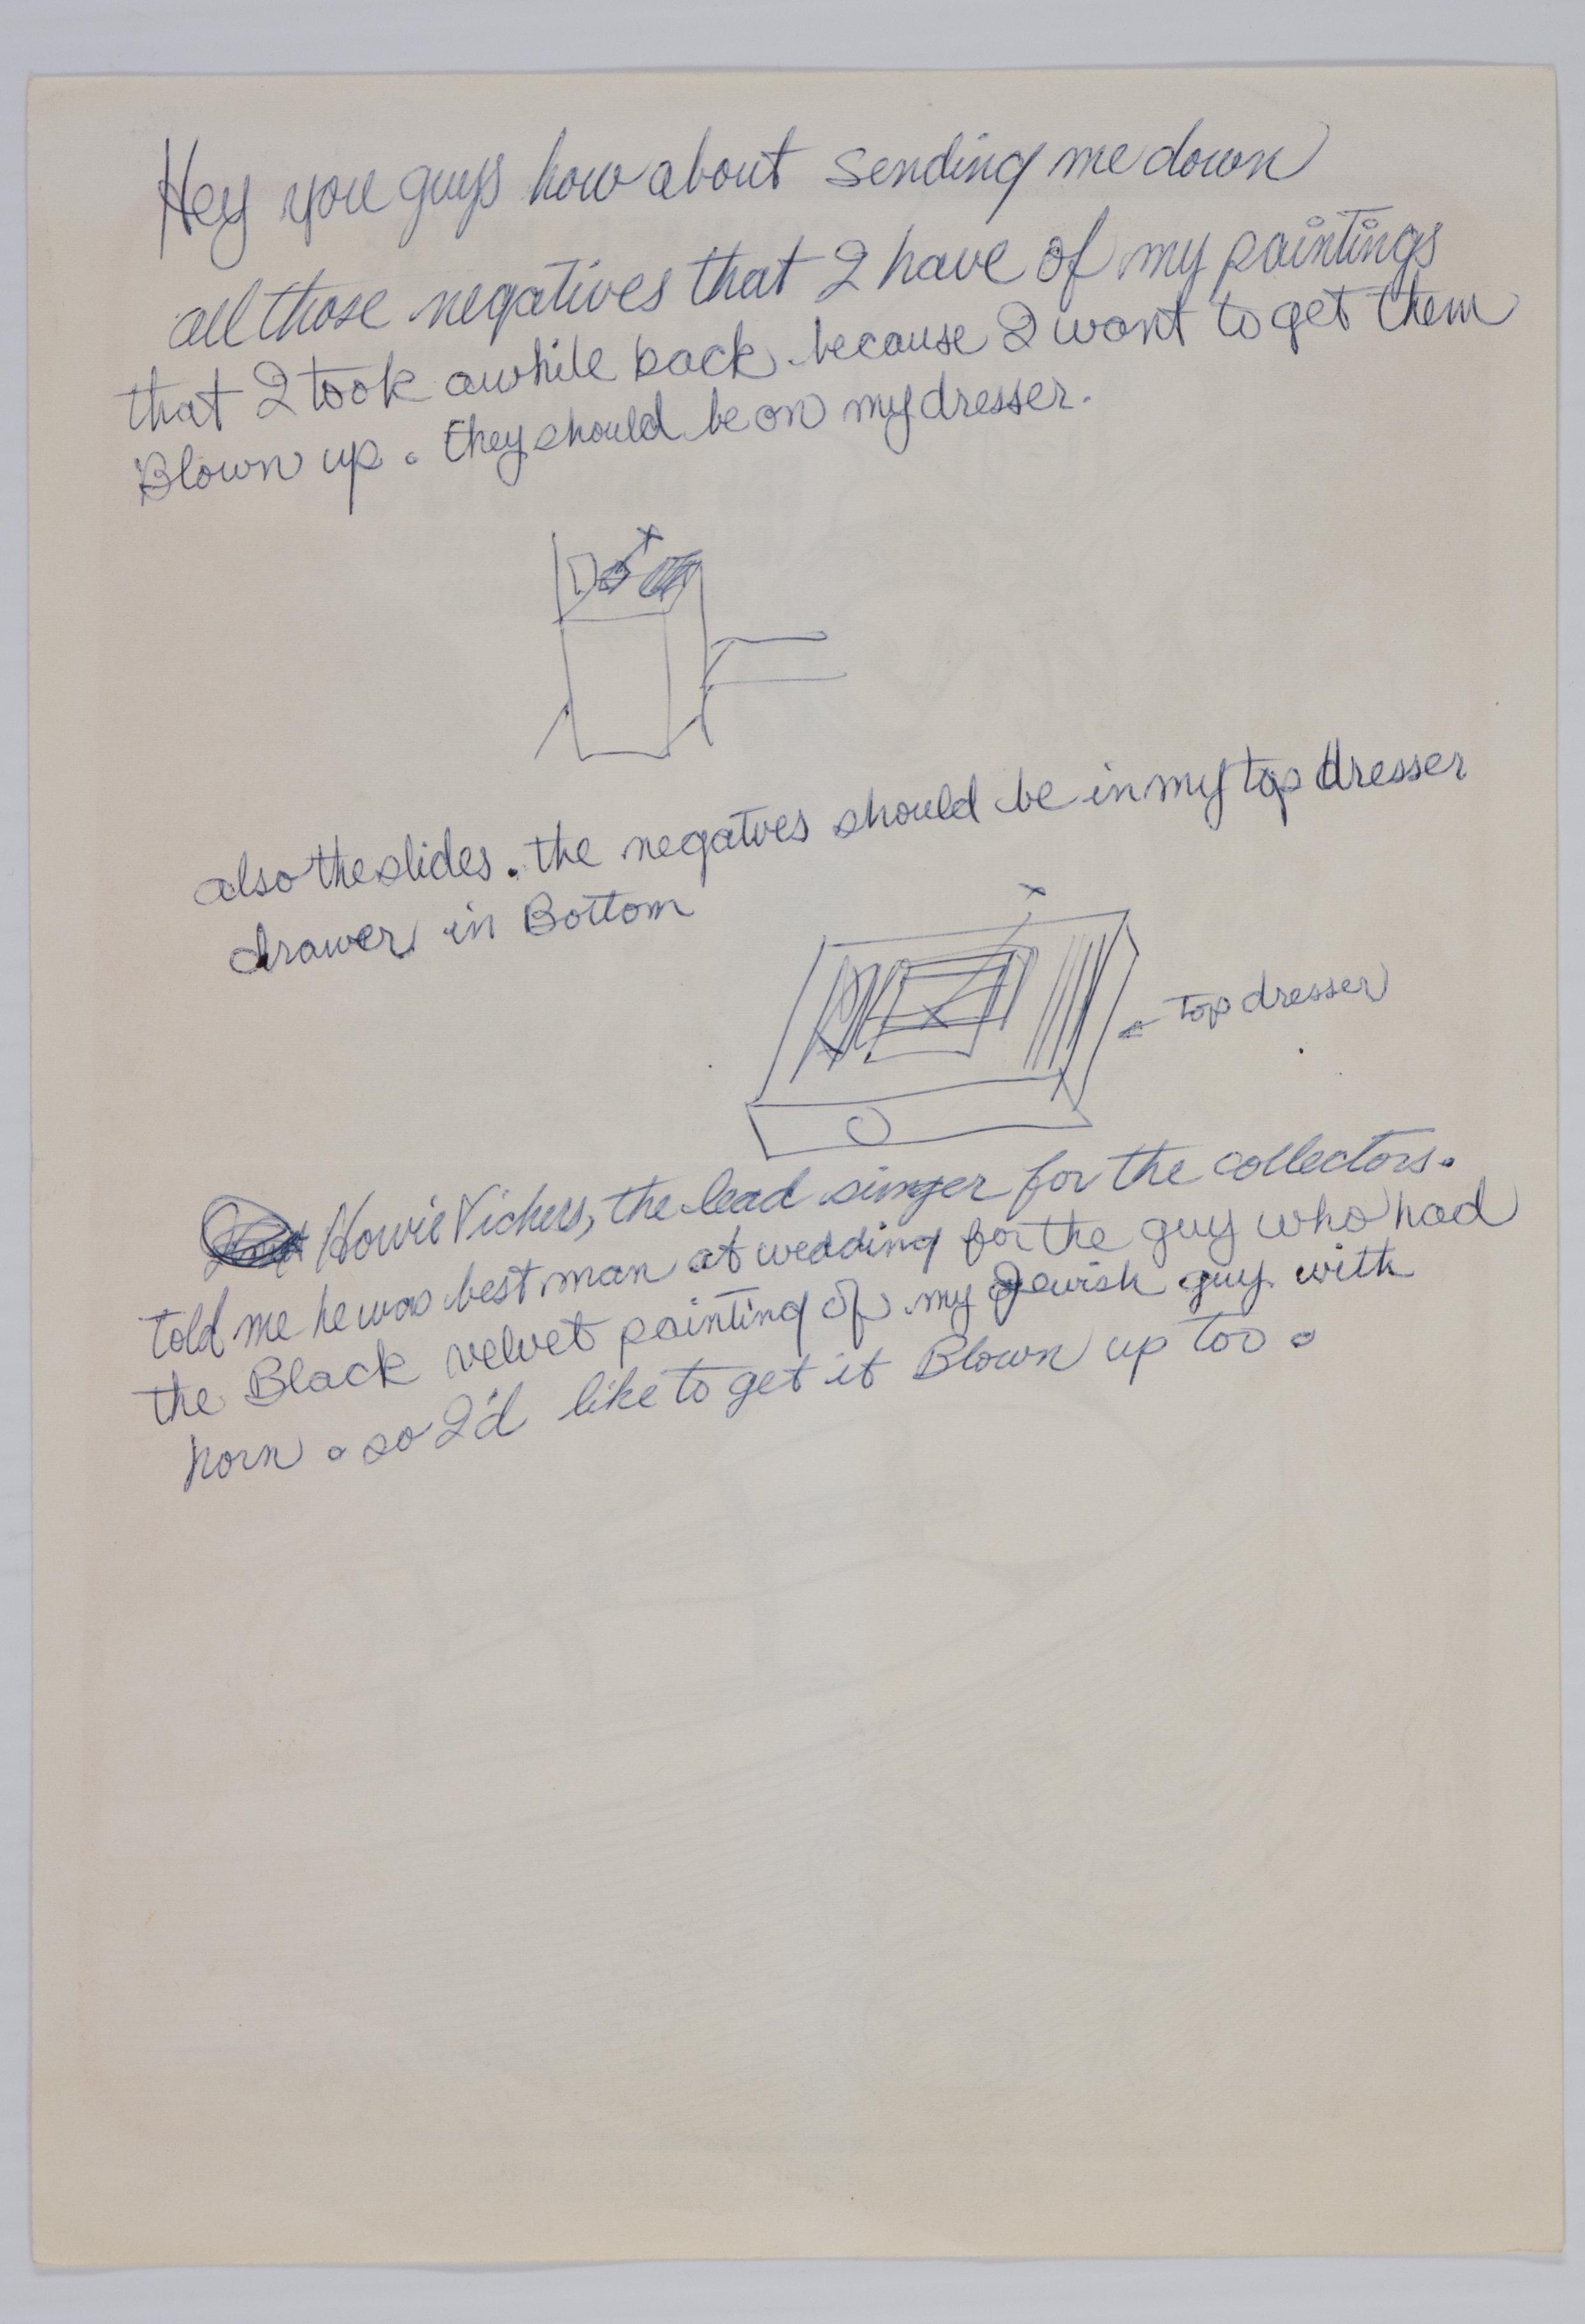 Hey you guys how about sending me down
all those negatives that I have of my paintings
that I took awhile back because I want to get them
Blown up. they should be on my dresser.
also the slides. the negatves should be in my top dresser
drawer in Bottom
top dresser
Howie Vickers, the lead singer for the collectors.
told me he was best man at wedding for the guy who had
the Black velvet painting of my Jewish guy with
horn. so I'd like to get it Blown up too.